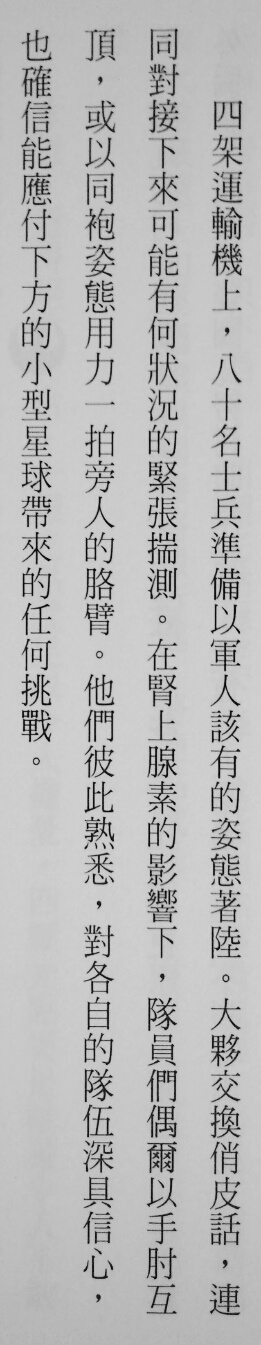 四架運輸機上，八十名士兵準備以軍人該有的姿態著陸。大夥交換俏皮話，連
同對接下來可能有何狀況的緊張揣測。在腎上腺素的影響下，隊員們偶爾以手肘互
頂，或以同袍姿態用力一拍旁人的胳臂。他們彼此熟悉，對各自的隊伍深具信心，
也確信能應付下方的小型星球帶來的任何挑戰。